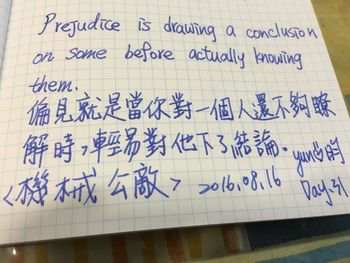 Prejudice is drawing a conclusion
on some before actually knowing
them.
偏見就是當你對一個人還不夠瞭
解時,輕易對他下了結論。
<機械公敵> 2016.08.16 Day-31